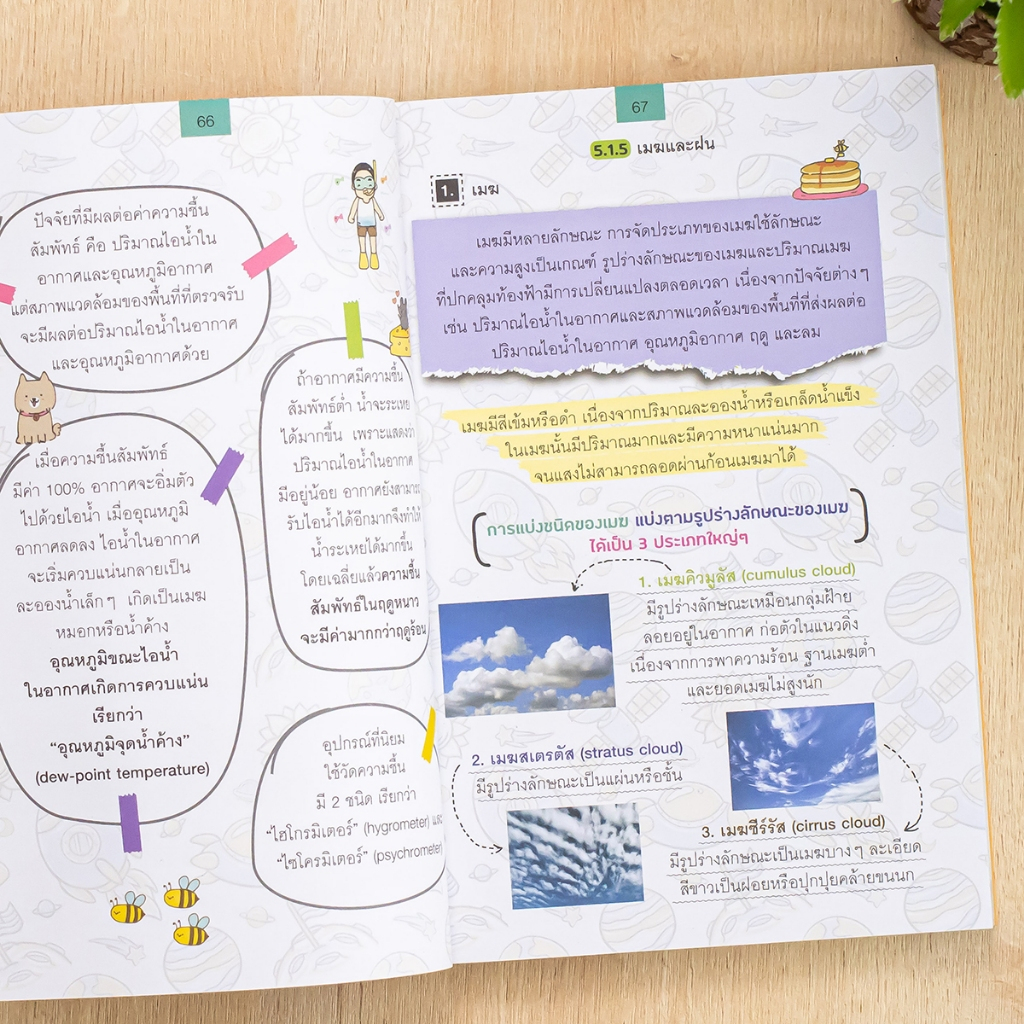 66
ปัจจัยที่มีผลต่อค่าความชื้น
สัมพัทธ์ คือ ปริมาณไอน้ำใน
อากาศและอุณหภูมิอากาศ
แต่สภาพแวดล้อมของพื้นที่ที่ตรวจรับ
จะมีผลต่อปริมาณไอน้ำในอากาศ
และอุณหภูมิอากาศด้วย
ถ้าอากาศมีความชื้น
สัมพัทธ์ต่ำ น้ำจะระเหย
ได้มากขึ้น เพราะแสดงว่า
ปริมาณไอน้ำในอากาศ
มีอยู่น้อย อากาศยังสามารถ
รับไอน้ำได้อีกมากจึงทำให้
น้ำระเหยได้มากขึ้น
โดยเฉลี่ยแล้วความชื้น
สัมพัทธ์ในฤดูหนาว
จะมีค่ามากกว่าฤดูร้อน
เมื่อความชื้นสัมพัทธ์
มีค่า 100% อากาศจะอิ่มตัว
ไปด้วยไอน้ำ เมื่ออุณหภูมิ
อากาศลดลง ไอน้ำในอากาศ
จะเริ่มควบแน่นกลายเป็น
ละอองน้ำเล็กๆ เกิดเป็นเมฆ
หมอกหรือน้ำค้าง
อุณหภูมิขณะไอน้ำ
ในอากาศเกิดการควบแน่น
เรียกว่า
“อุณหภูมิจุดน้ำค้าง”
(dew-point temperature)
อุปกรณ์ที่นิยม
ใช้วัดความชื้น
มี 2 ชนิด เรียกว่า
“ไฮโกรมิเตอร์” (hygrometer) และ
“ไซโครมิเตอร์” (psychrometer)
67
5.1.5 เมฆและฝน
1. เมฆ
เมฆมีหลายลักษณะ การจัดประเภทของเมฆใช้ลักษณะ
และความสูงเป็นเกณฑ์ รูปร่างลักษณะของเมฆและปริมาณเมฆ
ที่ปกคลุมท้องฟ้ามีการเปลี่ยนแปลงตลอดเวลา เนื่องจากปัจจัยต่างๆ
เช่น ปริมาณไอน้ำในอากาศและสภาพแวดล้อมของพื้นที่ที่ส่งผลต่อ
ปริมาณไอน้ำในอากาศ อุณหภูมิอากาศ ฤดู และลม
เมฆมีสีเข้มหรือดำ เนื่องจากปริมาณละอองน้ำหรือเกล็ดน้ำแข็ง
ในเมฆนั้นมีปริมาณมากและมีความหนาแน่นมาก
จนแสงไม่สามารถลอดผ่านก้อนเมฆมาได้
การแบ่งชนิดของเมฆ แบ่งตามรูปร่างลักษณะของเมฆ
ได้เป็น 3 ประเภทใหญ่ๆ
1. เมฆคิวมูลัส (cumulus cloud)
มีรูปร่างลักษณะเหมือนกลุ่มฝ้าย
ลอยอยู่ในอากาศ ก่อตัวในแนวดิ่ง
เนื่องจากการพาความร้อน ฐานเมฆต่ำ
และยอดเมฆไม่สูงนัก
2. เมฆสเตรตัส (stratus cloud)
มีรูปร่างลักษณะเป็นแผ่นหรือชั้น
3. เมฆซีร์รัส (cirrus cloud)
มีรูปร่างลักษณะเป็นเมฆบางๆ ละเอียด
สีขาวเป็นฝอยหรือปุกปุยคล้ายขนนก